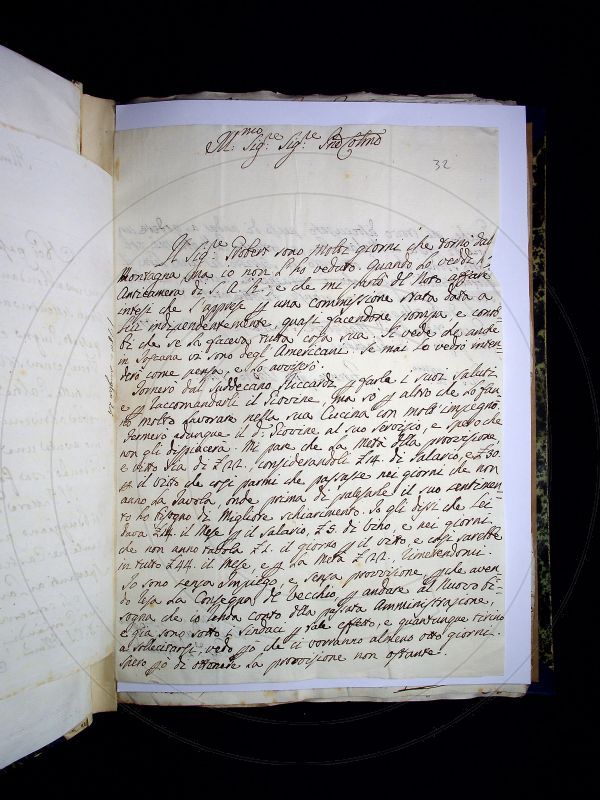 M.mo Sig.re Sig.re Pne Colmo
32
Il Sig.re Robert sono molti giorni che tornò dal
Montagna ma io non l'ho veduto. Quando lo veddi in
Anticamera di S. A. R., e che mi parlò del Noto affare
intesi che l'apprese una commissione stata data a
lei independentemente, quasi facendone pompa, e
che se la faceva tutta cosa sua. Si vede che anche
in Toscana vi sono degl'Americani. Se mai lo vedrò inten-
derò come pensa, e lo avviserò.
Tornerò dal Suddecano Riccardi p farle i suoi saluti
e p raccomandarli il Piovine, ma so p altro che lo fan-
no molto lavorare nella sua Cucina con molt'impegno.
Fermerò adunque il d.o Piovine al suo servizio, e spero che
non gli dispiacerà. Mi pare che la metà della provvisione,
e vitto sia di £ 22. considerandoli £ 14. di salario, e £ 30.
p il vitto che così parmi che passasse nei giorni che non
anno la Tavola, onde prima di palesarle il suo sentimen-
to ho bisogno di migliore schiarimento. Io gli dissi che Lei
dava £ 14. il Mese p il salario, £ 5. di vino, e nei giorni
che non anno tavola £ 1. il giorno p il vitto, e così sarebbe
in tutto £ 44. il Mese, e p la metà £ 22. rimettendomi
Io sono senza Impiego, e senza provvisione, p che aven
do resa la Consegna di Vecchio, p andare al Nuovo bi-
sogna che io renda conto della passata Amministrazione,
e già sono sotto i Sindaci p tale effetto, e quantunque
a sollecitarsi, vedo p che ci vorranno almeno otto giorni.
Spero p di ottenere la provvisione non ostante.